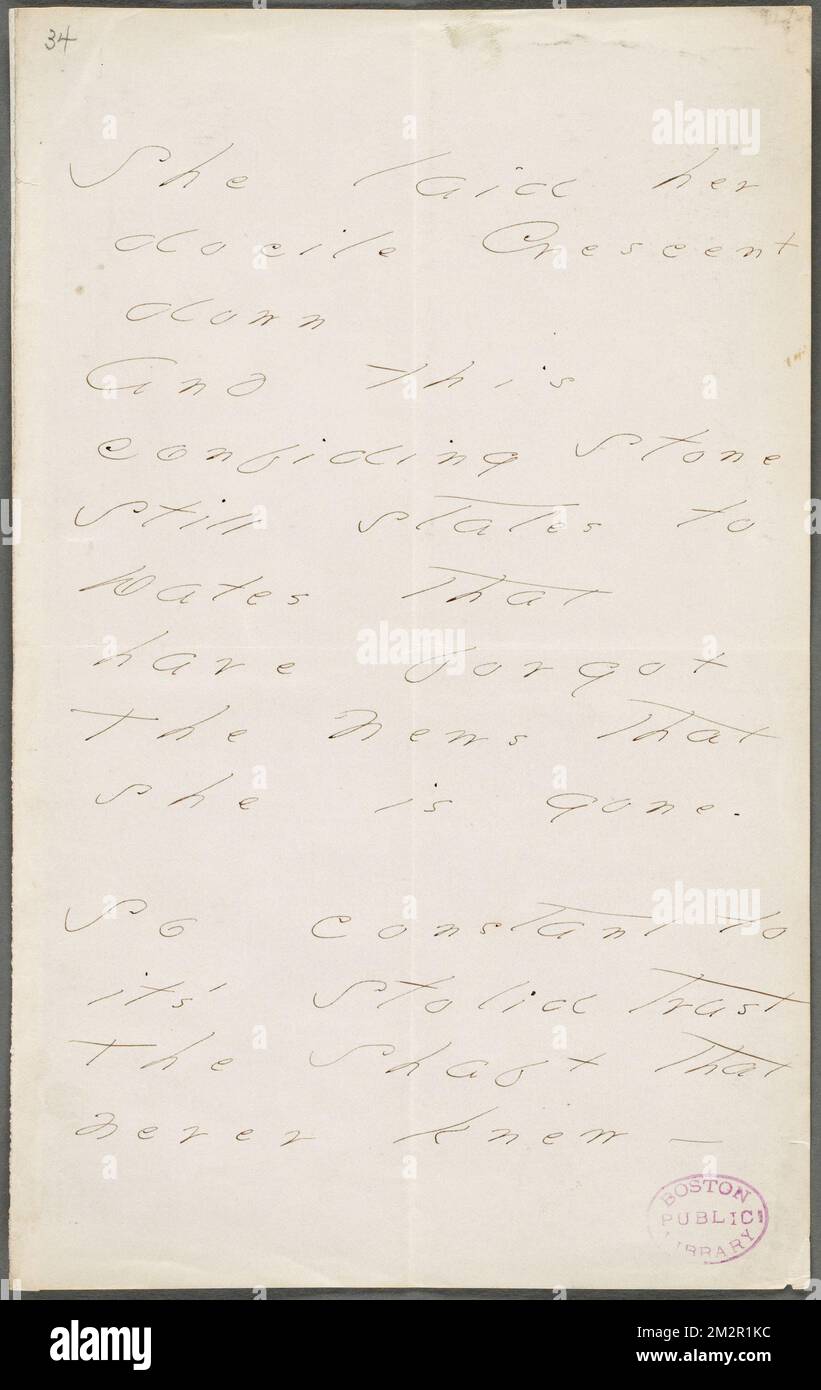 34
She laid her
docile Crescent
down
And this
confiding Stone
Still States to
Dates that
have forgot
The News that
she is gone.
So constant to
it's Stolid Trust
The Shaft that
never knew —
BOSTON
PUBLIC
LIBRARY
alamy
alamy
Image ID: 2M2R1KC
www.alamy.com